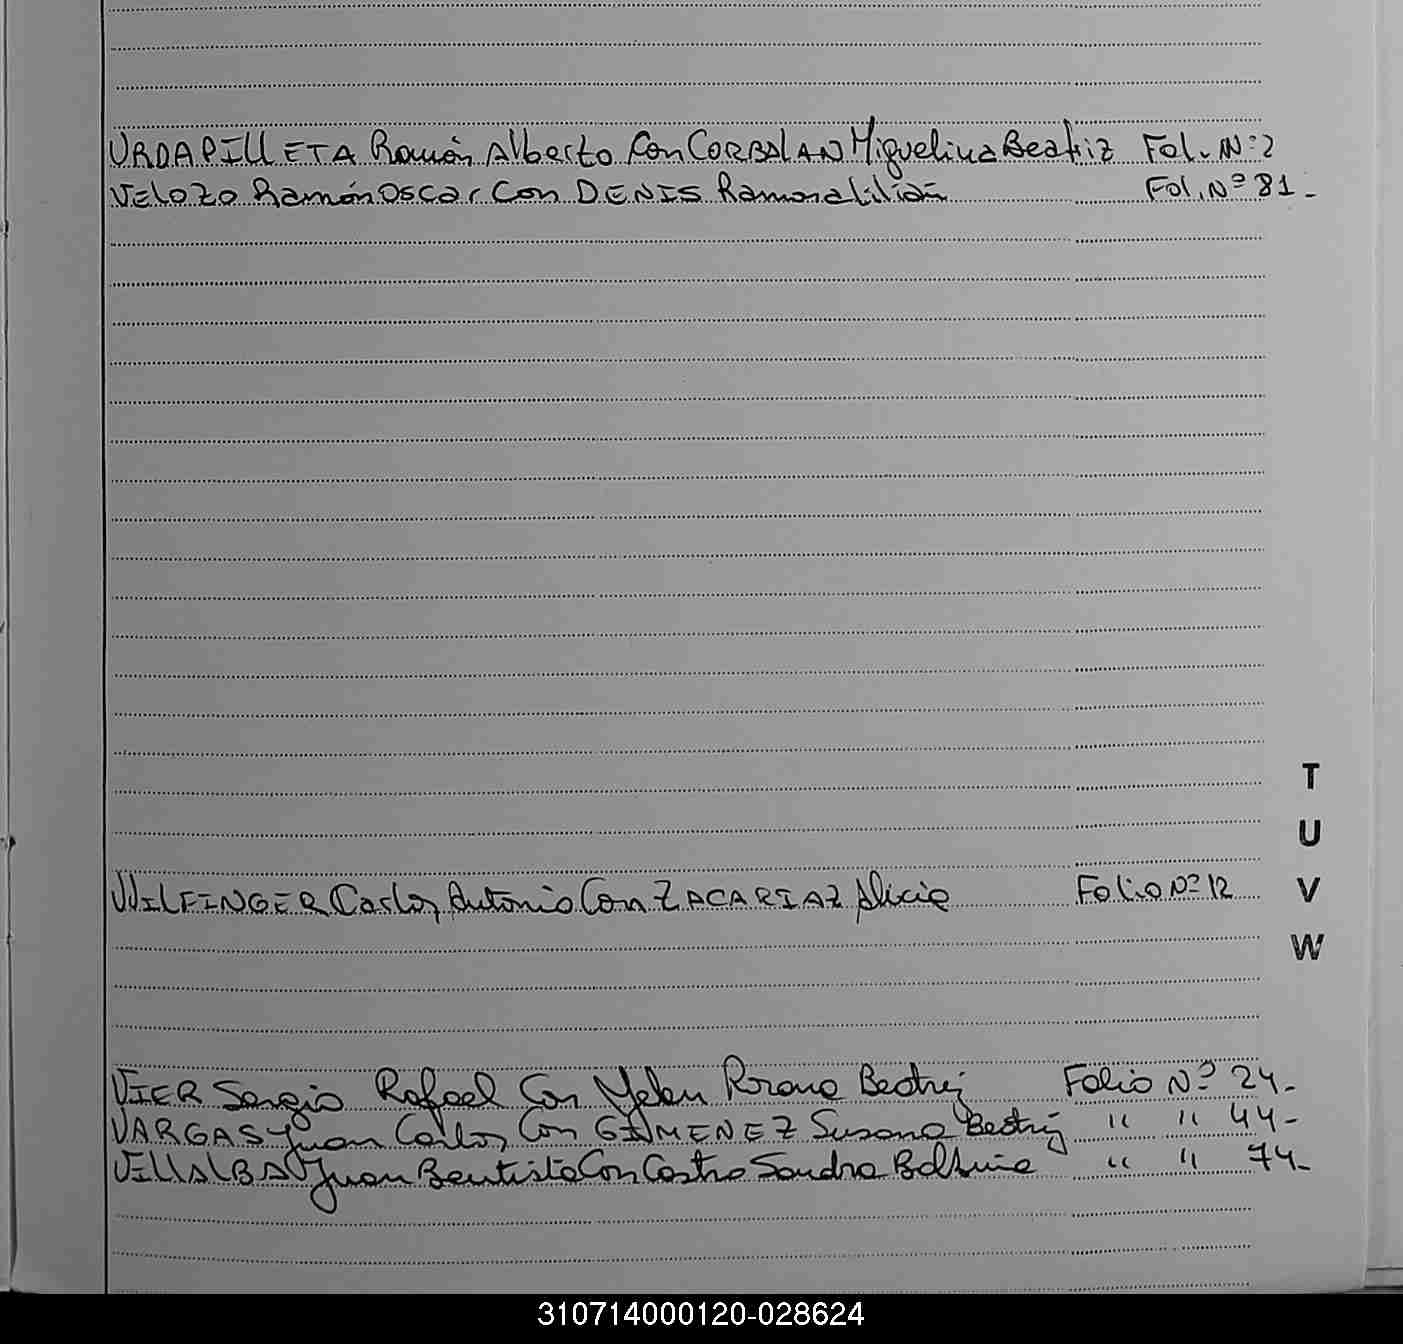 URDAPILLETA Ramón Alberto Con CORBALAN Miguelina Beatriz Fol. Nº 2
VELOZO Ramón Oscar Con DENIS Ramona Lilian Fol. Nº 81-
T
U
WILFINGER Carlos Antonio Con ZACARIAZ Alicia Folio Nº 12
V
W
VIER Sergio Rafael Con Beatriz Folio Nº 24-
VARGAS Juan Carlos Con GIMENEZ Susana Beatriz " " 44-
VILLALBA Juan Bautista Con Castro Sandra Balbina " " 74-
310714000120-028624